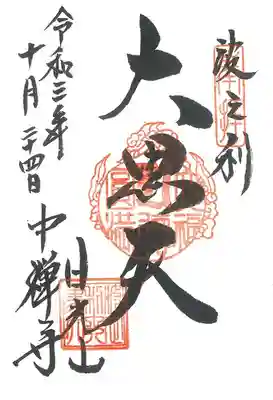 波之利
大黒天
令和三年
十月二十四日
日光山
中禅寺